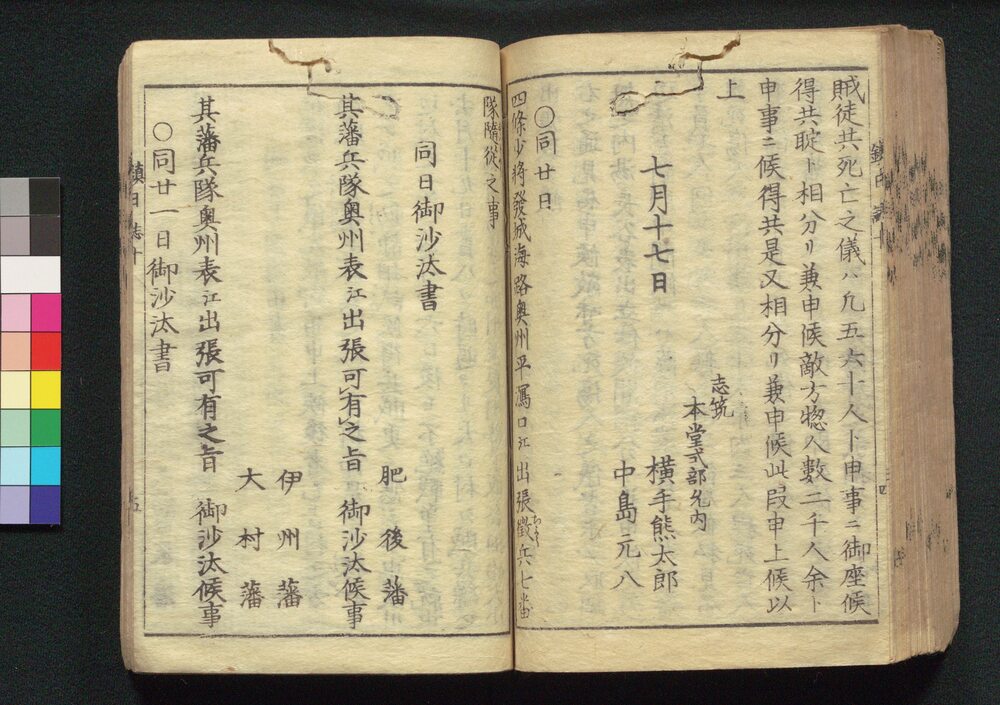 賊徒共死亡之儀ハ凡五六十人ト申事ニ御座候
得共聢ト相分リ兼申候敵方惣人數二千人余ト
申事ニ候得共是又相分リ兼申候此段申上候以
上
志筑
本堂式部允内
七月十七日　横手熊太郎
中島元八
○同廿日
四條少將發城海路奧州平潟口江出張徴兵七番
隊隨從之事
同日御沙汰書
肥後藩
其藩兵隊奧州表江出張可有之旨　御沙汰候事
伊州藩
大村藩
其藩兵隊奧州表江出張可有之旨　御沙汰候事
○同廿一日御沙汰書
鎮日誌十
五